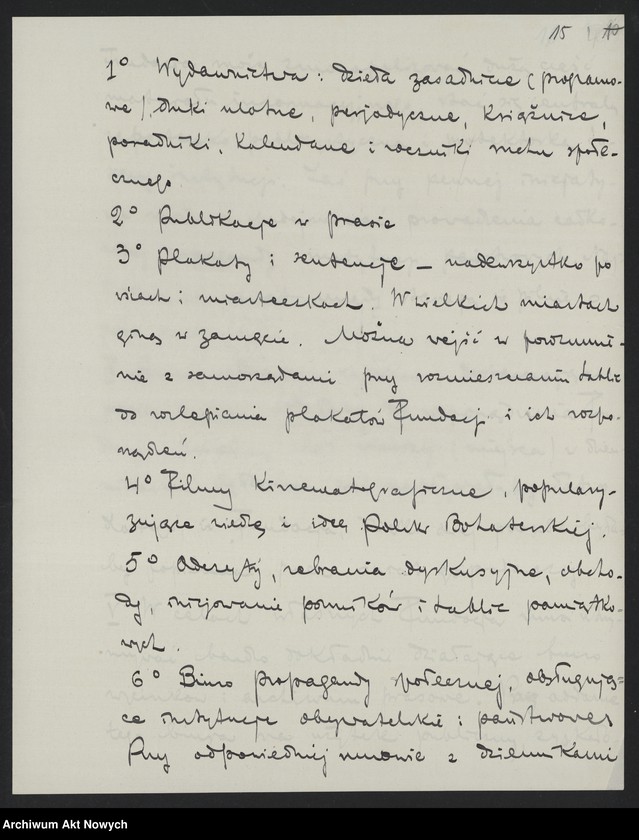 15 10
1° Wydawnictwa: dzieła zasadnicze (programo-
we), druki ulotne, perjodyczne, książnice,
poradniki, kalendarze i roczniki ruchu społe-
cznego
2° Publikacje w prasie
3° Plakaty i sentencje – nadewszystko po
wsiach i miasteczkach. W wielkich miastach
giną w zamęcie. Można wejść w porozumie-
nie z samorządami przy rozmieszczaniu tablic
do rozlepiania plakatów Fundacji i ich rozpo-
rządzeń.
4° Filmy kinematograficzne, populary-
zujące wiedzę i ideę Polski Bohaterskiej.
5° Odczyty, zebrania dyskusyjne, obcho-
dy, inicjowanie pomników i tablic pamiątko-
wych.
6° Biuro propagandy społecznej, obsługują=
ce instytucje obywatelskie i państwowe
Przy odpowiedniej umowie z dziennikami
Archiwum Akt Nowych